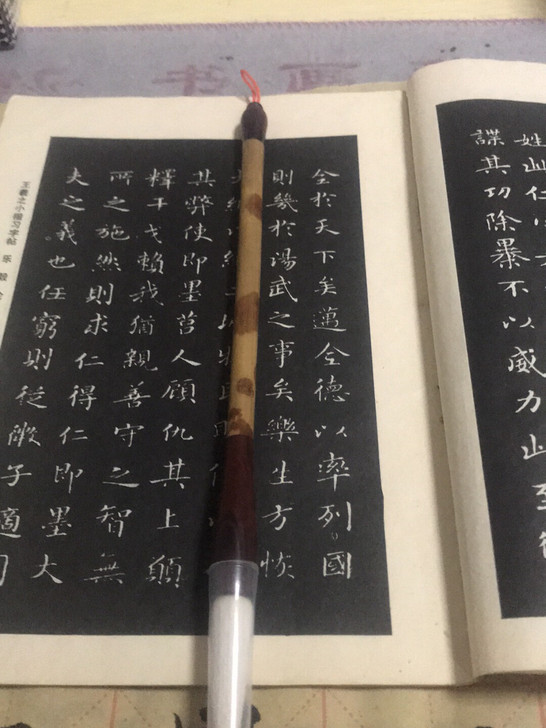 姓此仁心
謀其功除暴不以威力此至德
全於天下矣邁全德以率列國
則幾於湯武之事矣樂生方恢
其弊使即墨莒人顧仇其上願
釋干戈賴我猶親善守之智無
所之施然則求仁得仁即墨大
夫之義也任窮則從微子適周
王羲之小楷习字帖 乐毅论